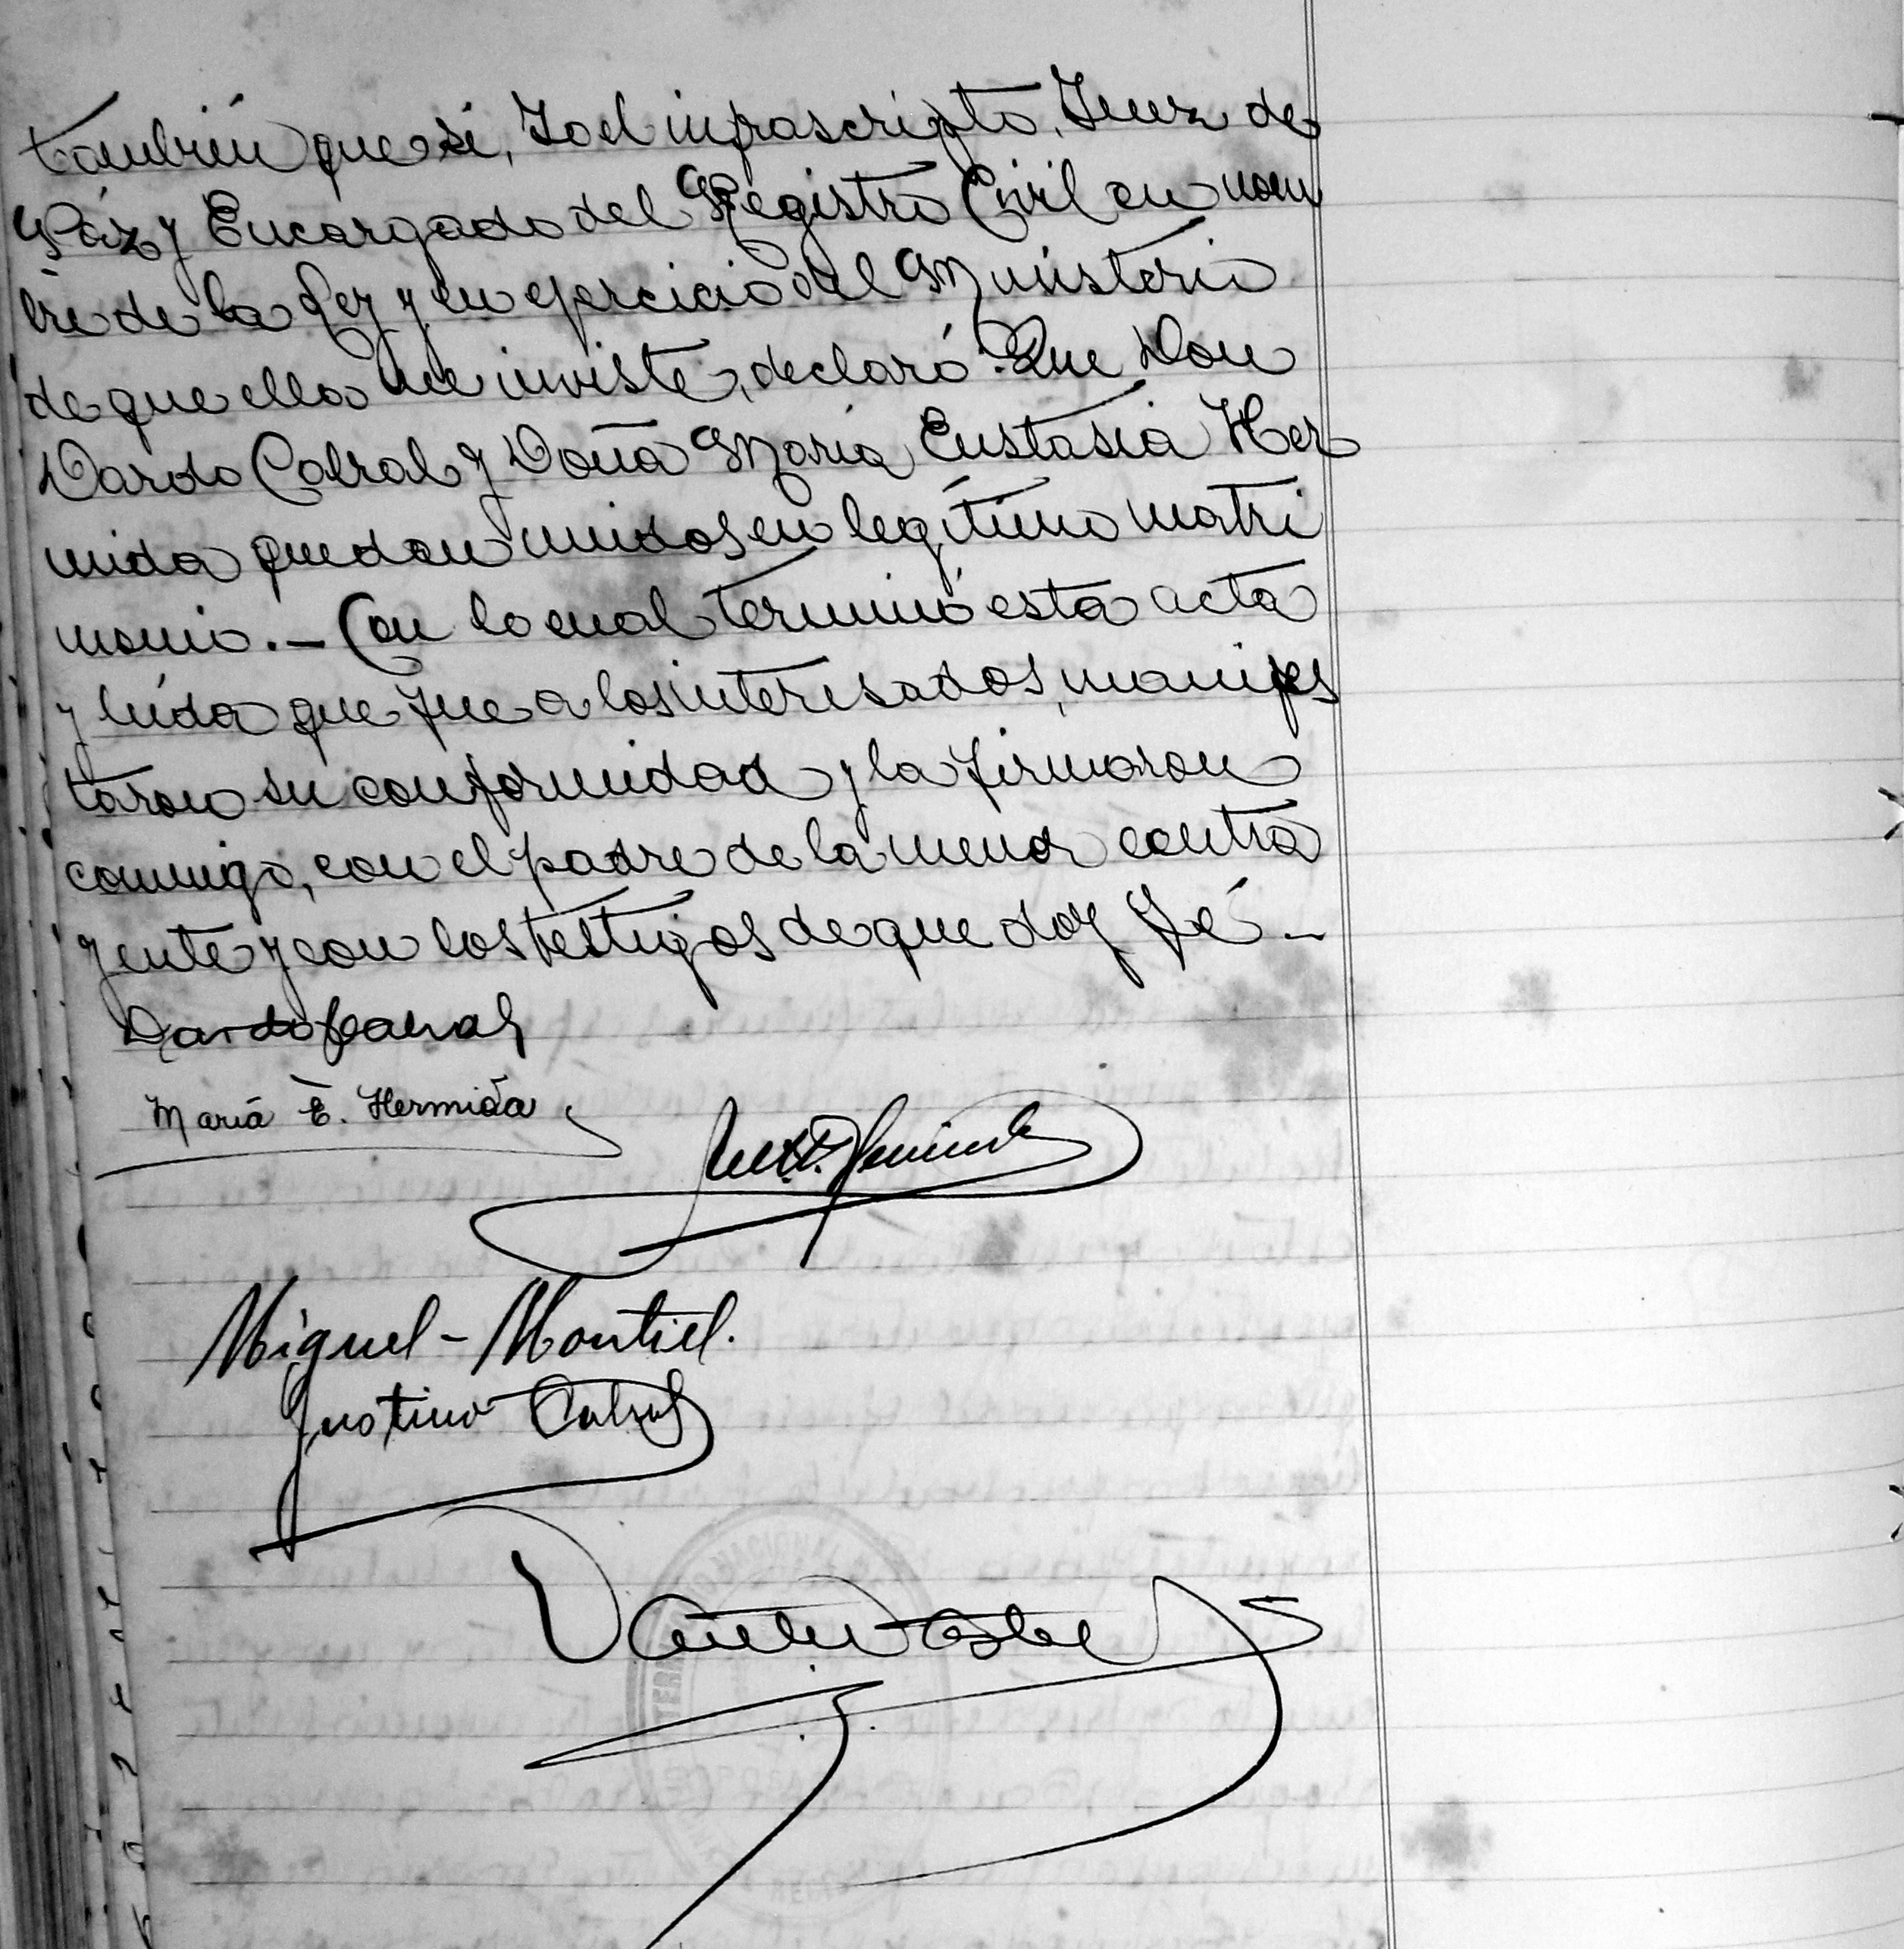 también que sí, Yo el infrascripto, Juez de
Páz y Encargado del Registro Civil en nom
bre de la Ley y en ejercicio del Ministerio
de que ella me inviste, declaró: Que Don
Dardo Cabral y Doña María Eustasia Her
mida quedan unidos en legítimo matri
monio.— Con lo cual terminó esta acta
y leída que fue a los interesados, manifes
taron su conformidad y la firmaron
conmigo, con el padre de la menor contra
yente y con los testigos de que doy Fé.—
Dardo Cabral
María E. Hermida
Miguel - Montiel.
Justino Cabral
NACIONAL